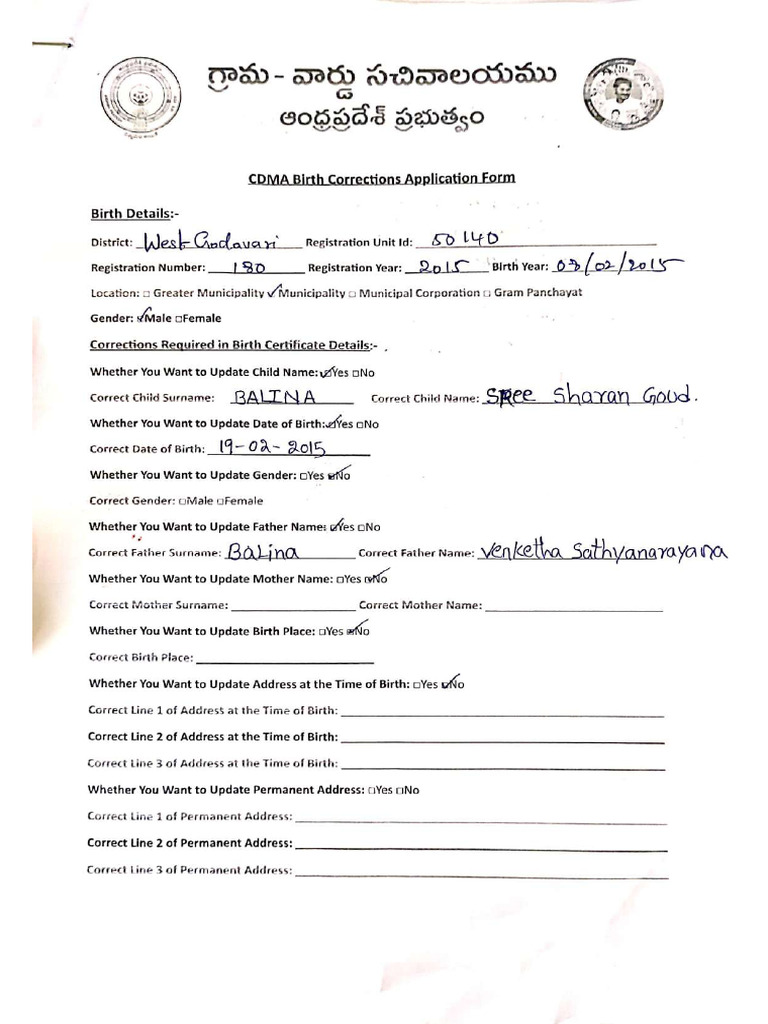 గ్రామ - వార్డు సచివాలయము
ఆంధ్రప్రదేశ్ ప్రభుత్వం
CDMA Birth Corrections Application Form
Birth Details:-
District: West Godavari Registration Unit Id: 50140
Registration Number: 180 Registration Year: 2015 Birth Year: 03/02/2015
Location: □ Greater Municipality ✓Municipality □ Municipal Corporation □ Gram Panchayat
Gender: ✓Male □Female
Corrections Required in Birth Certificate Details:-
Whether You Want to Update Child Name: ✓Yes □No
Correct Child Surname: BALINA Correct Child Name: SREE Sharan Goud.
Whether You Want to Update Date of Birth: ✓Yes □No
Correct Date of Birth: 19-02-2015
Whether You Want to Update Gender: □Yes ✓No
Correct Gender: □Male □Female
Whether You Want to Update Father Name: ✓Yes □No
Correct Father Surname: BALina Correct Father Name: Venketha Sathyanarayana
Whether You Want to Update Mother Name: □Yes ✓No
Correct Mother Surname: Correct Mother Name:
Whether You Want to Update Birth Place: □Yes ✓No
Correct Birth Place:
Whether You Want to Update Address at the Time of Birth: □Yes ✓No
Correct Line 1 of Address at the Time of Birth:
Correct Line 2 of Address at the Time of Birth:
Correct Line 3 of Address at the Time of Birth:
Whether You Want to Update Permanent Address: □Yes □No
Correct Line 1 of Permanent Address:
Correct Line 2 of Permanent Address:
Correct Line 3 of Permanent Address: